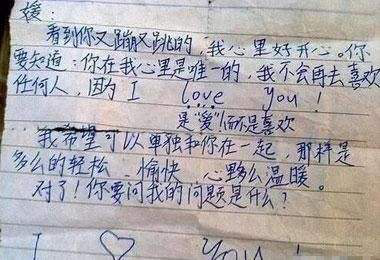 媛：
看到你又蹦又跳的，我心里好开心。你
要知道：你在我心里是唯一的，我不会再去喜欢
任何人，因为I love you!
是“爱”!而不是喜欢
我希望可以单独和你在一起，那样是
多么的轻松、愉快、心夥么温暖。
对了！你要问我的问题是什么？
I ♡ you!